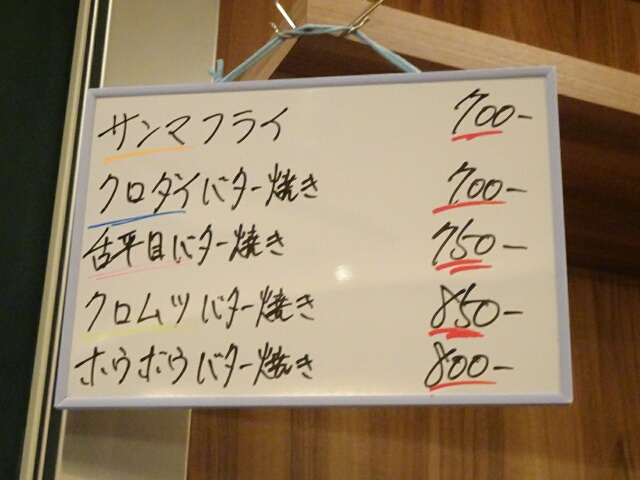 サンマフライ 700-
クロダイバター焼き 700-
舌平目バター焼き 750-
クロムツバター焼き 850-
ホウボウバター焼き 800-